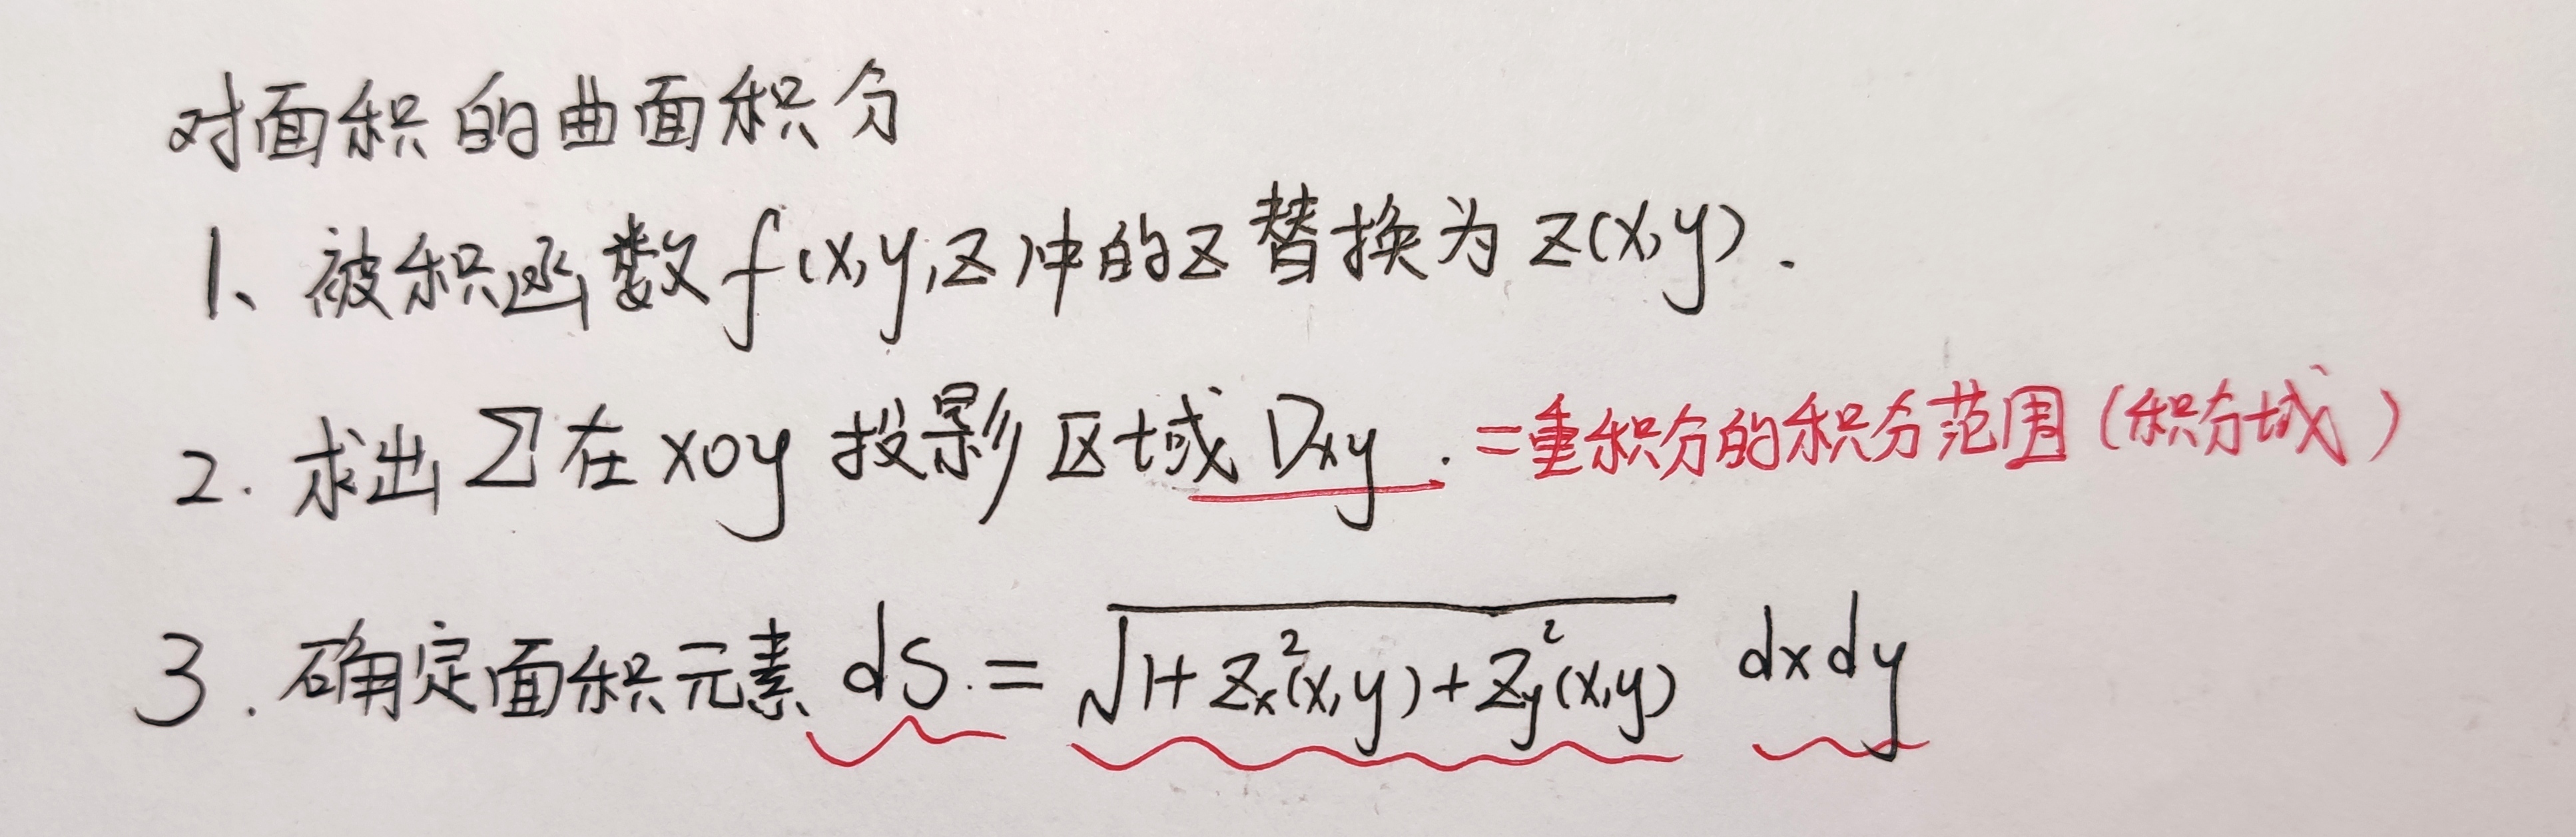 对面积的曲面积分
1、被积函数f(x,y,z)中的z替换为z(x,y).
2.求出Σ在xoy投影区域Dxy.=重积分的积分范围(积分域)
3.确定面积元素dS.=√(1+Zx²(x,y)+Zy²(x,y)) dxdy